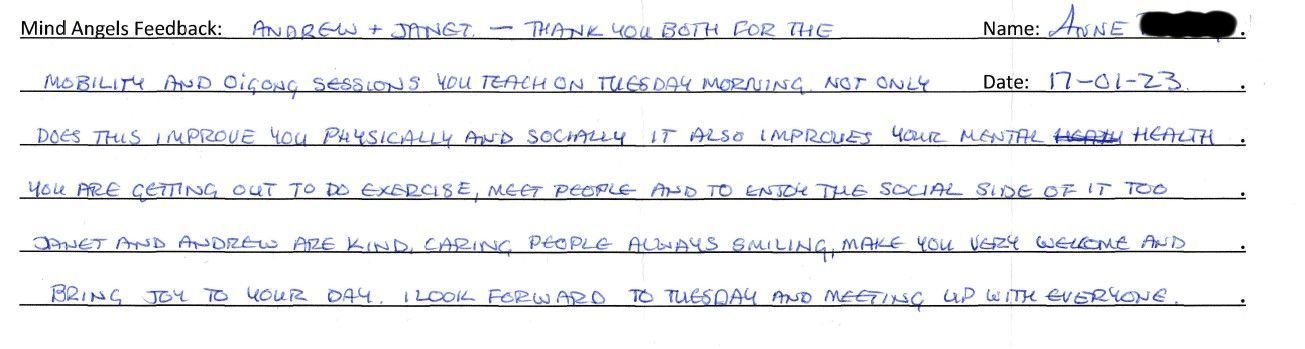 Mind Angels Feedback: ANDREW + JANET. — THANK YOU BOTH FOR THE Name: ANNE .
MOBILITY AND QIGONG SESSIONS YOU TEACH ON TUESDAY MORNING. NOT ONLY Date: 17-01-23. .
DOES THIS IMPROVE YOU PHYSICALLY AND SOCIALLY IT ALSO IMPROVES YOUR MENTAL HEALTH .
YOU ARE GETTING OUT TO DO EXERCISE, MEET PEOPLE AND TO ENJOY THE SOCIAL SIDE OF IT TOO .
JANET AND ANDREW ARE KIND, CARING PEOPLE ALWAYS SMILING, MAKE YOU VERY WELCOME AND .
BRING JOY TO YOUR DAY. I LOOK FORWARD TO TUESDAY AND MEETING UP WITH EVERYONE. .